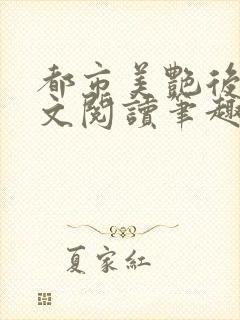 都市美艷後
文閱讀筆趣
夏家紅